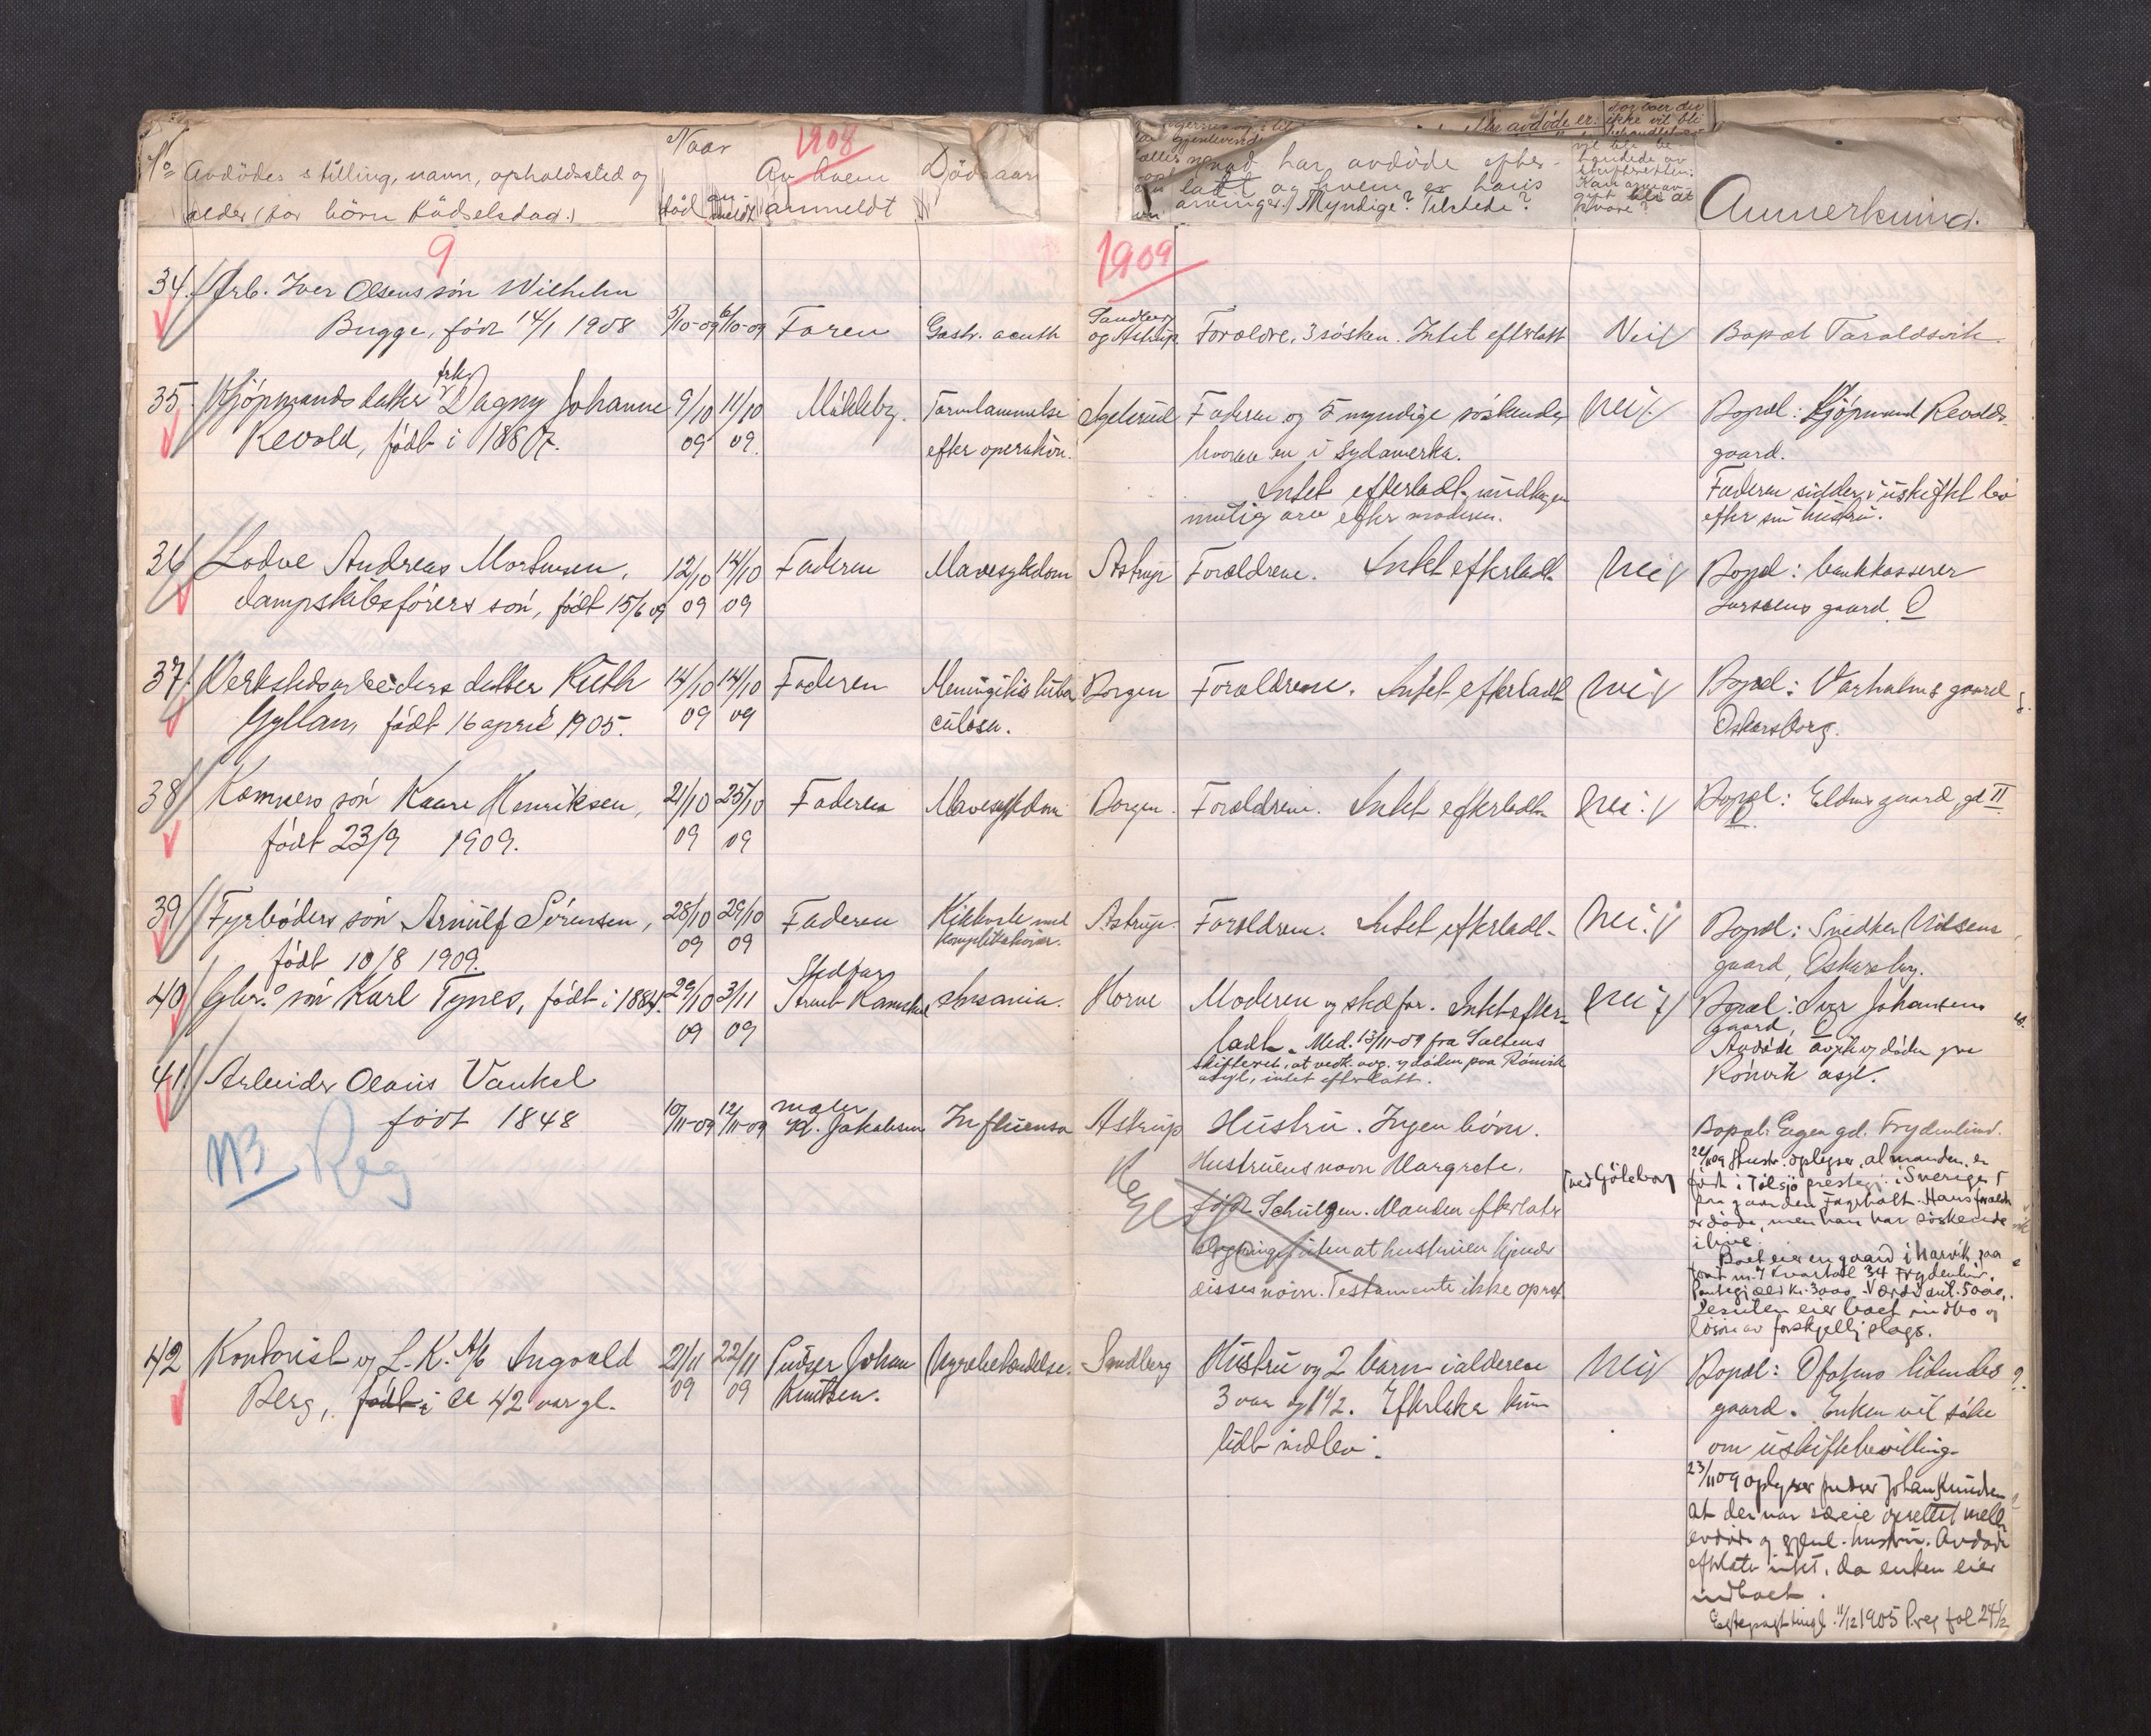 No
Avdödes stilling, navn, opholdssted og
alder (for börn födselsdag.)
Naar
död
an
meldt
1908
Av hvem
anmeldt
Dödsaar
hvad har avdöde efter-
ladt og hvem er hans
arvinger? Myndige? Tilstede?
avdöde er
ikke vil bli
Anmerkning.
9
1909
34. Arb. Iver Olsens sön Wilhelm
Bugge, född 14/1 1908
5/10-09
6/10-09
Faren
Gastr. acuth
Sandberg
og Astrup
Forældre, 3 søsken. Intet efterlatt
Nei
Bopæl Taraldsvik
35. Kjöpmands datter frk. Dagny Johanne
Revold, födt i 1887.
9/10 09
11/10 09.
Mikkelby.
Tarmlammelse
efter operation.
Agelsrud
Faderen og 5 myndige söskende,
hvorav en i Sydamerka.
Intet efterladt, undtagen
mulig arv efter moderen.
Nei.
Bopæl: Kjöpmand Revolds
gaard.
Faderen sidder i uskiftet bo
efter sin hustru.
36 Lodve Andreas Mortensen,
dampskibsförers sön, födt 15/6 09
12/10 09
14/10 09
Faderen
Mavesykdom
Astrup
Forældrene. Intet efterladt.
Nei
Bopæl: bankkasserer
Larssens gaard.
37. Verkstedsarbeiders datter Ruth
Gyllam, födt 16 april 1905.
14/10 09
14/10 09
Faderen
Meningitis tuber
culosa.
Borgen
Forældrene. Intet efterladt
Nei
Bopæl: Varholms gaard
Oskarsborg.
38 Kamners sön Kaare Henriksen,
födt 23/9 1909.
21/10 09
25/10 09
Faderen
Mavesykdom
Borgen.
Forældrene. Intet efterladt.
Nei.
Bopæl: Eldnes gaard, gd II
39 Fyrböders sön Arnulf Sörensen,
födt 10/8 1909.
28/10 09
29/10 09
Faderen
Kikhoste med
komplikationer.
Astrup.
Forældrene. Intet efterladt.
Nei.
Bopæl: Snedker Nilsens
gaard, Oskarsbg.
40 Gbr. sön Karl Tynes, födt i 1884.
29/10 09
3/11 09
Stedfar
Insania.
Horne
Moderen og stedfar. Intet efter-
ladt. Med. 13/11-09 fra Saltens
skifteret, at vedk. avg. ved döden paa Rönvik
asyl, intet efterlatt.
Nei
Bopæl: Iver Johansens
gaard,
Avdöde avgik ved döden paa
Rönvik asyl.
41. Arbeider Olaus Vankel
född 1848
10/11-09
12/11-09
maler
Kr. Jakobsen
Influensa
Astrup
NB Reg
Hustru. Ingen börn.
Hustruens navn Margrete,
född Schulgen. Manden efterlater
slegtninge uten at hustruen kjender
disses navn. Testamente ikke opret.
ved Göteborg
Bopæl: Egen gd. Frydenlund.
22/11 09 Hustr. oplyser, at manden er
född i Tölsjö prestegj. i Sverige
fra gaarden Fagerhalt. Hans forældre
er döde, men han har söskende
i live.
Boet eier en gaard i Narvik paa
tomt nr. 7 kvartal 34 Frydenlund.
Pantegjæld kr. 3000. Værdi ant. 5000,.
Desuten eier boet indbo og
lösöre av forskjellig slags.
42 Kontorist ved L.K. A/B Ingvald
Berg, födt i ca 42 aar gl.
21/11 09
22/11 09
Pudser Johan
Knutsen.
Nyrebetændelse.
Sandberg
Hustru og 2 barn i alderen
3 aar og 1 1/2. Efterlater kun
lidt indbo.
Nei
Bopæl: Ofotens tidendes
gaard. Enken vil söke
om uskiftebevilling.
23/11 09 oplyser pudser Johan Knudsen
at der var særeie oprettet mell.
avdöde og gjenl. hustru. Avdöde
efterlater intet, da enken eier
indboet.
Egtepagt tingl. 11/12 1905 P.reg fol 24 1/2